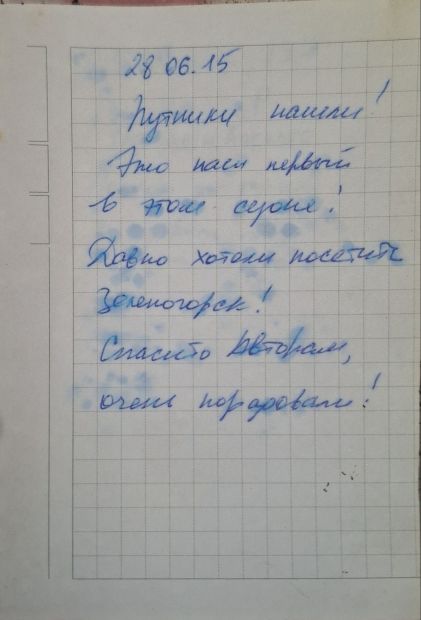 28 06.15
Путники нашли!
Это наш первый
в этом сезоне!
Давно хотели посетить
Зеленогорск!
Спасибо Авторам,
очень порадовали!